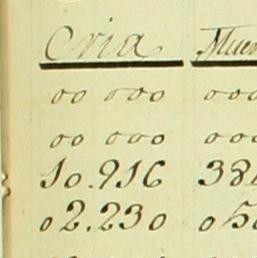 Cria
oo ooo ooo
oo ooo
10.916 38
02.230 05